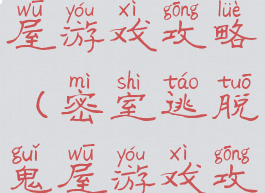 wū yóu xì gōng lüè
屋游戏攻略
mì shì táo tuō
（密室逃脱
guǐ wū yóu xì gōng
鬼屋游戏攻